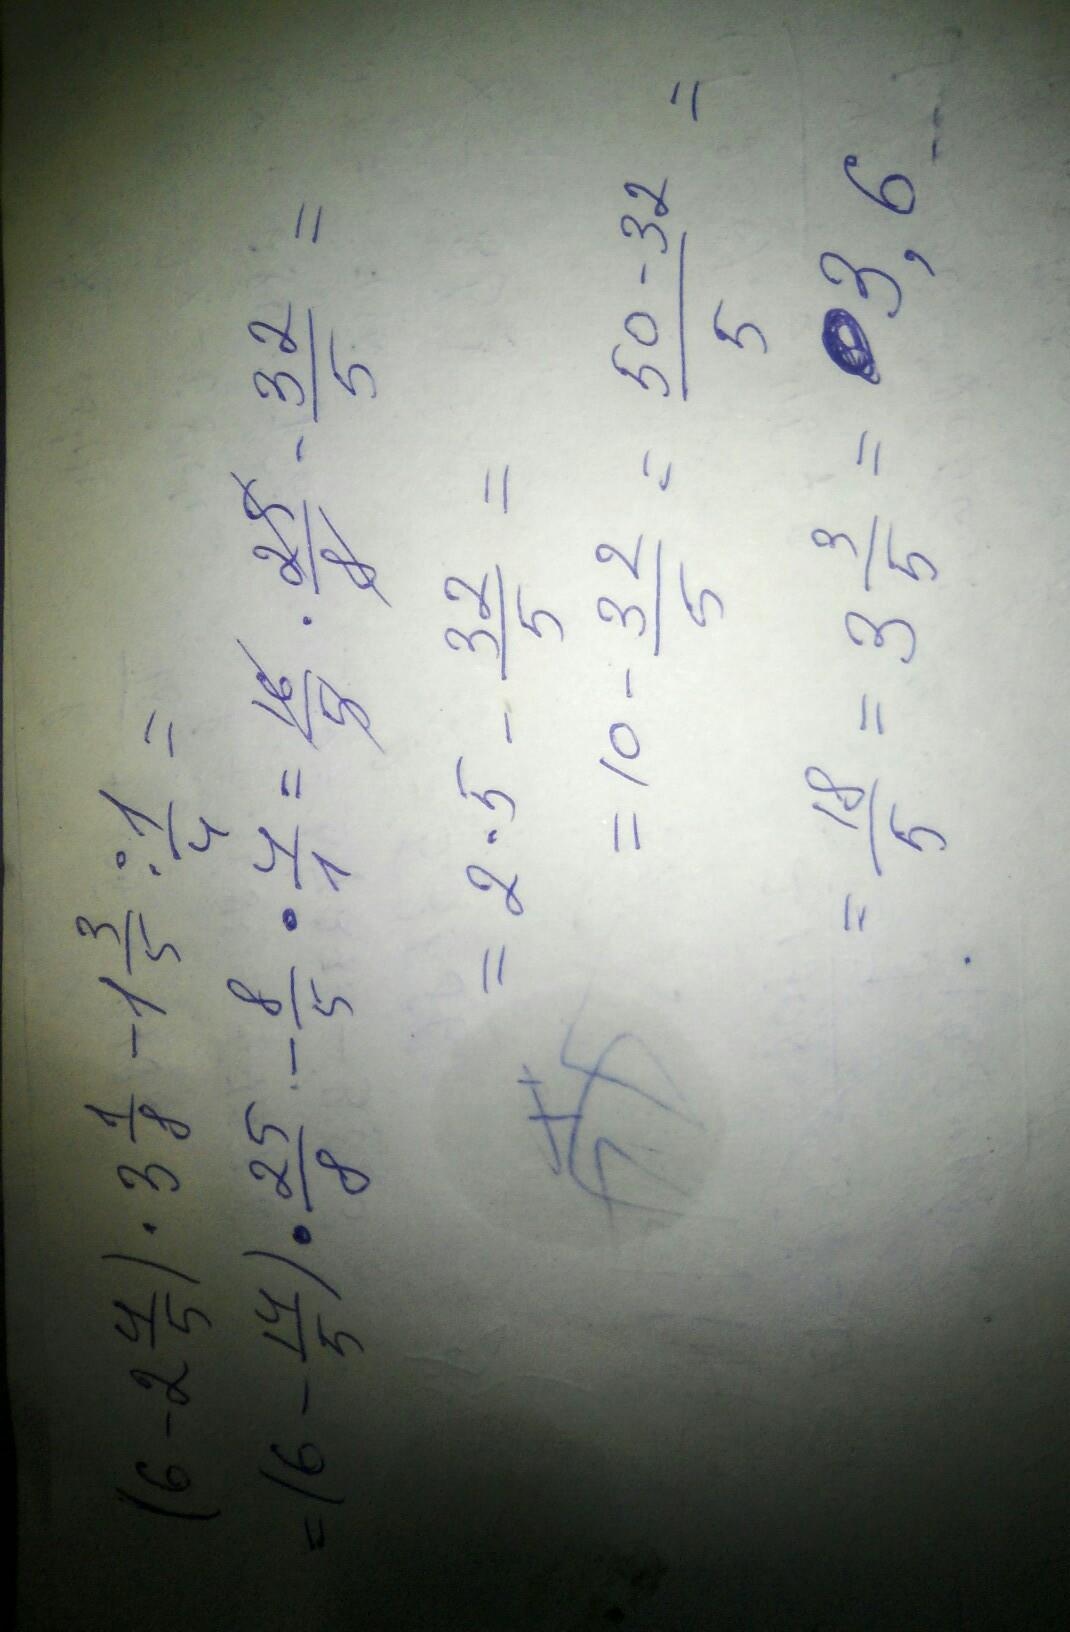 (6 - 2 4/5) · 3 1/8 - 1 3/5 : 1/4 =
= (6 - 14/5) · 25/8 - 8/5 · 4/1 = 16/5 · 25/8 - 32/5 =
= 2 · 5 - 32/5 =
= 10 - 32/5 = 50 - 32/5 =
= 18/5 = 3 3/5 = 3,6